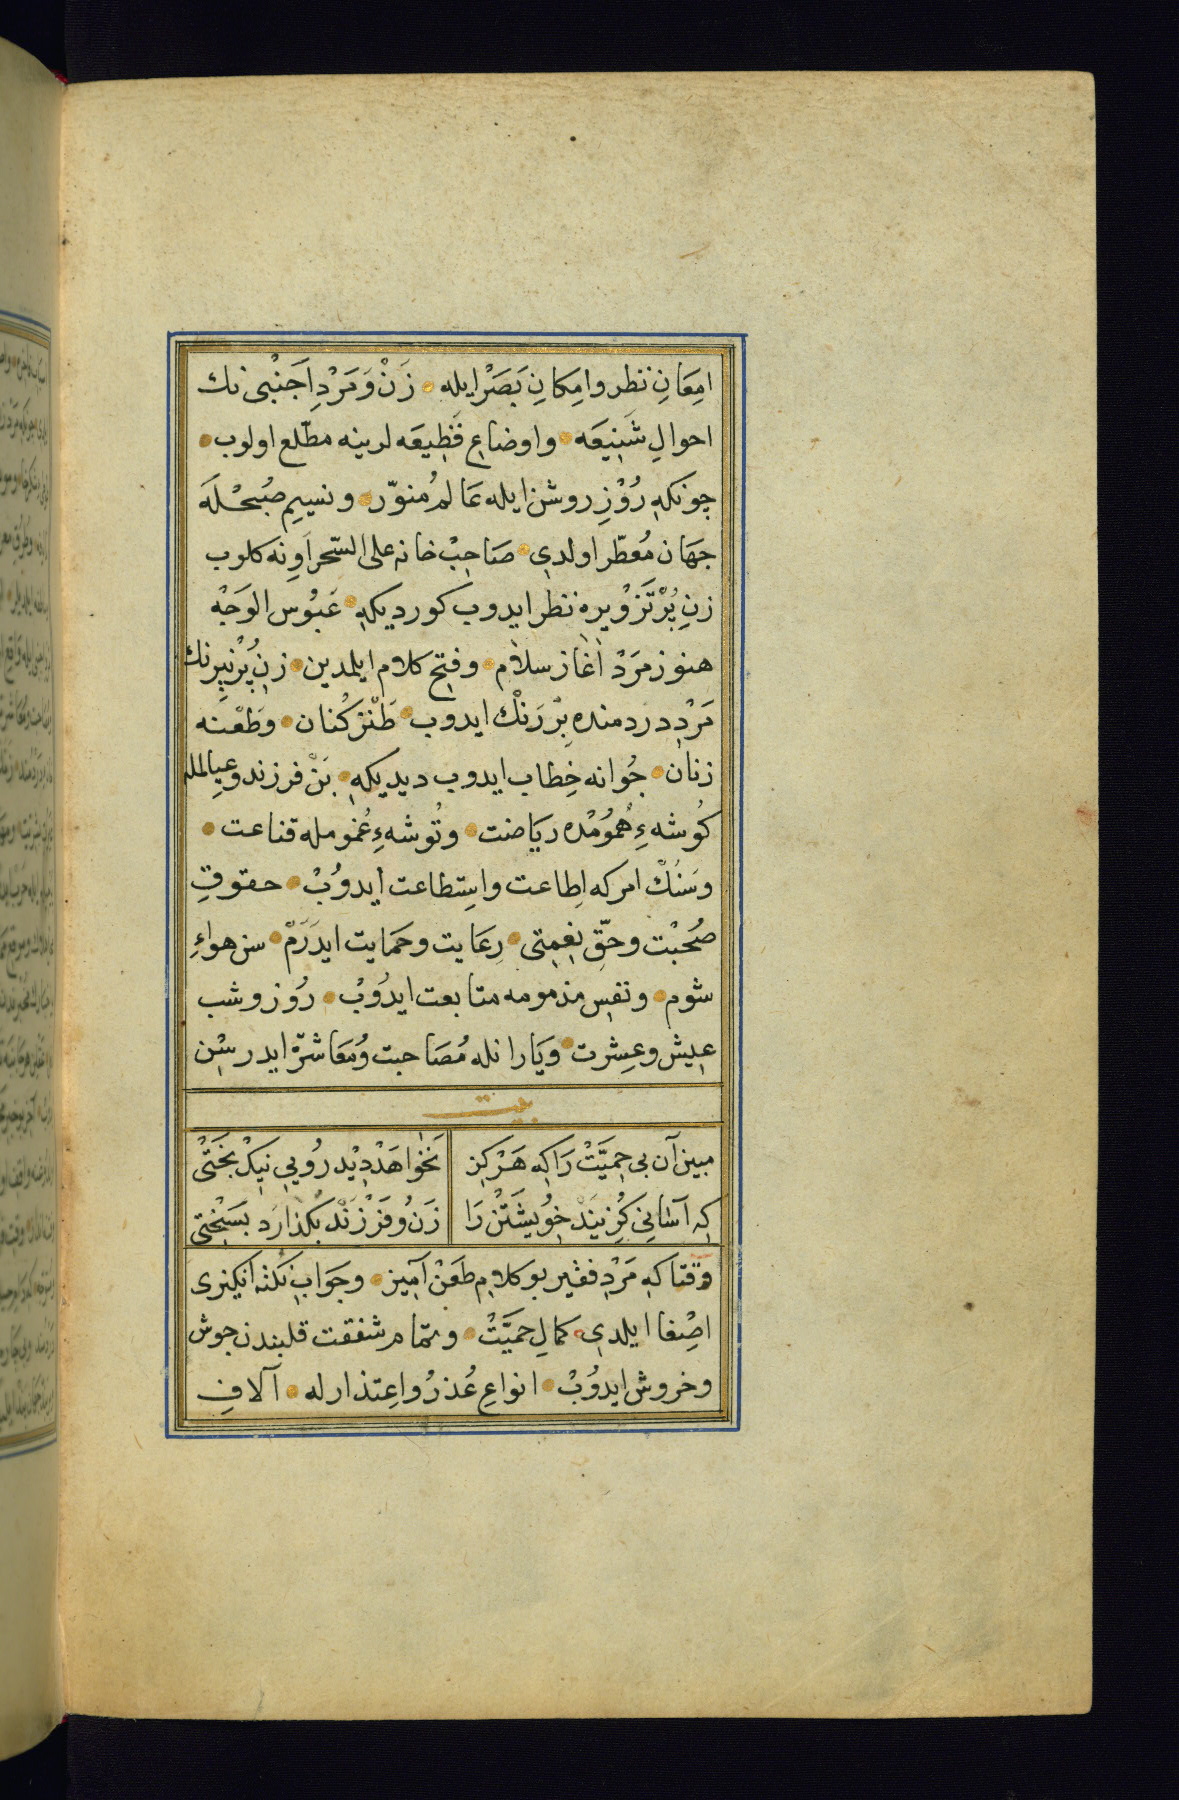 امِعَانِ نظر وامِكانِ بَصَرْايله زَنْ وَمَرْدِ اَجَنْبى نك
احوالِ شَنِيعَه واوضاعِ فَظِيعَه لرينه مطّلع اولوب
چونكهِ رُوْزِ روشن ايله عَالم مُنوّر ونسيمِ صُبحْلَه
جَهَان مُعطّر اولدى صَاحِبْ خانه على السّحر اَوِنه كلوب
زنِ پُرْتَزْوْيره نظر ايدوب كورديكهِ عَبُوْس الوَجْه
هنوز مَرْد آغاز سلام وفتح كلام ايلمدين زنِ پُرْنيرنك
مَرْدِ دردمنده بِرْ رَنْك ايدوب طَنْز كُنان وَطَعْنه
زنان جُوانه خِطاب ايدوب ديديكهِ بَنْ فرزند وعيالمله
كُوشهءِ هُمُومْده ريَاضت وتُوشهءِ غُمومله قناعت
وسَنُكْ امركه اِطاعت واسِتطاعت ايدوُبْ حقوقِ
صُحْبْت وحقِّ نِعمتى رِعَايت وحمَايت ايدَرَمْ سن هواءِ
شوم ونفسِ مذمومه متابعت ايدُوبْ رُوز وشب
عيش وعِشرت ويَارانله مُصَاحبت وُمعَاشرة ايدرسْن
بيت
مبين آن بى حِميَّتْ رَاكِه هَرْكِز نَخْواهَدْ دِيْد رُويىِ نِيكْ بَخْتىْ
كِه آسَانىِ كُزِيَندْ خِوُيشَتْن رَا زَنُ وفَرْزَنْد بكذارَد بسَخْتى
وقتاكهِ مَرْدِ فقير بو كلامِ طَعْن آمِيز وجَوَابِ نكته انكيزى
اصِغا ايلدى كمالِ حميَّتْ وتمامِ شفقت قلبندن جوش
وخروش ايدوُبْ انواعِ عُذرُ واعِتذارله آلافِ